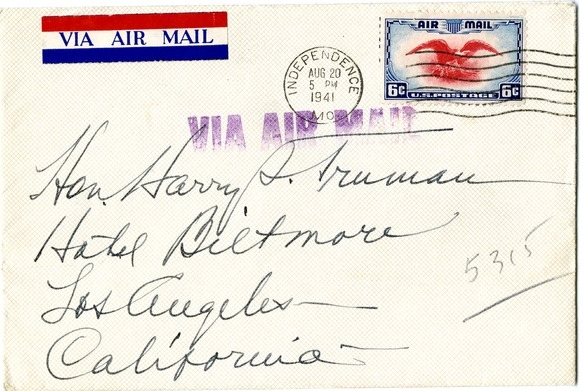 VIA AIR MAIL
AIR MAIL
6¢ U.S. POSTAGE 6¢
INDEPENDENCE
AUG 20
5 PM
1941
MO.
VIA AIR MAIL
Hon. Harry S. Truman
Hotel Biltmore
Los Angeles
California
5315